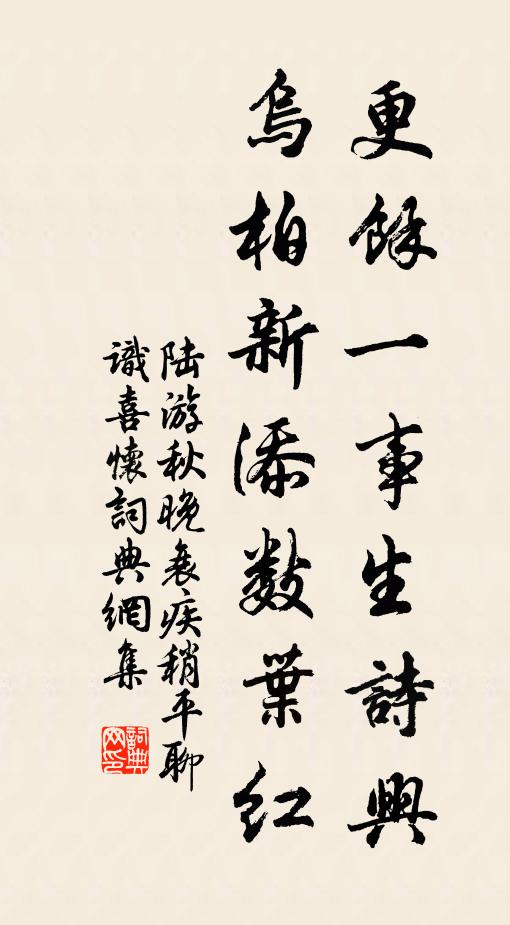 更餘一事生詩興
烏桕新添數葉紅
陸游秋晚衰疾稍平聊
識喜懷詞典網集
詞典
网印